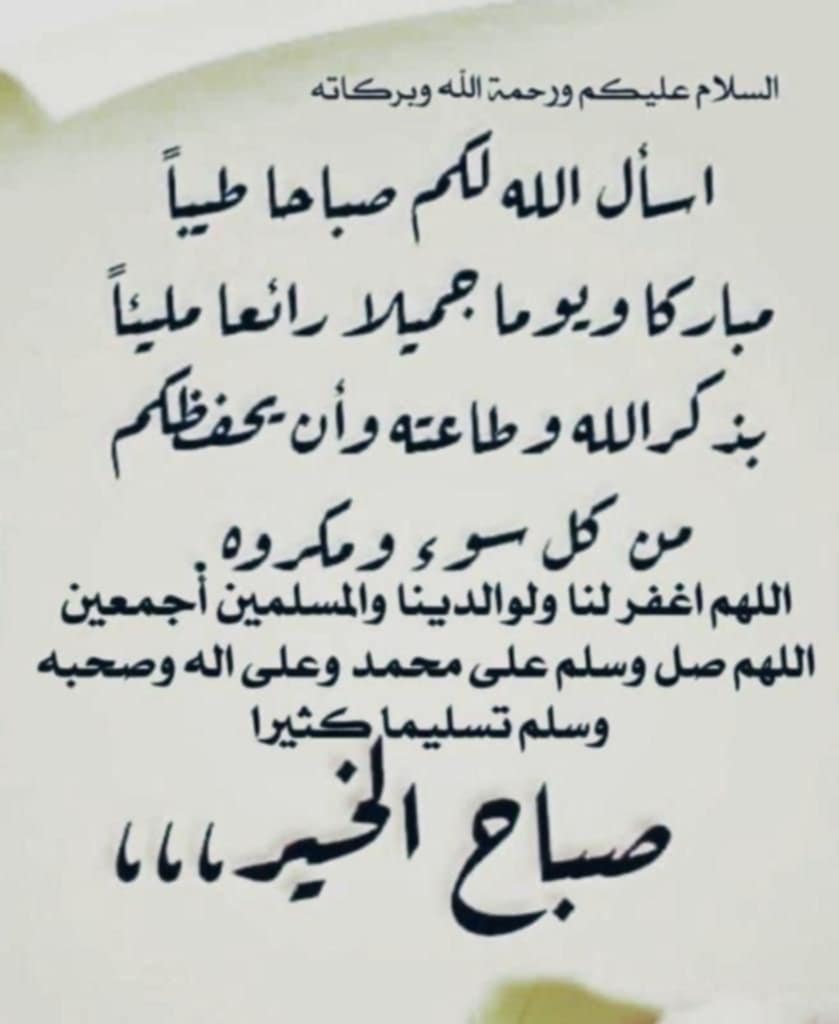 السلام عليكم ورحمة الله وبركاته
اسأل الله لكم صباحا طيباً
مباركا ويوما جميلا رائعا مليئاً
بذكر الله وطاعته وأن يحفظكم
من كل سوء ومكروه .
اللهم اغفر لنا ولوالدينا والمسلمين أجمعين
اللهم صل وسلم على محمد وعلى اله وصحبه
وسلم تسليما كثيرا
صباح الخير،،،